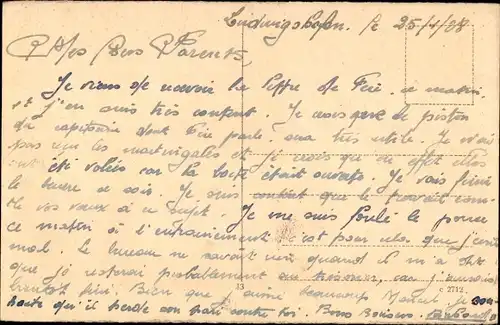 Ludwigshafen, le 25/4/28
Mes chers Parents,
Je viens de recevoir la lettre de Féé ce matin
et j'en suis très content. Je pense que le piston
du capitaine dont Féé parle sera très utile. Je n'ai
pas reçu les martingales et je crois qu'en effet elles
ont été volées car la boîte était ouverte. Je vais finir
le livre ce soir. Je suis content que le travail
vos vœux à ce sujet. Je me suis foulé le pouce
ce matin à l'entrainement c'est pour cela que j'écris
mal. Le bureau ne savait rien quand il m'a dit
que je resterai probablement au car j'aurais
bientôt fini. Bien que j'aime beaucoup je
33
souhaite qu'il perde son pari contre toi. Bons Baisers.